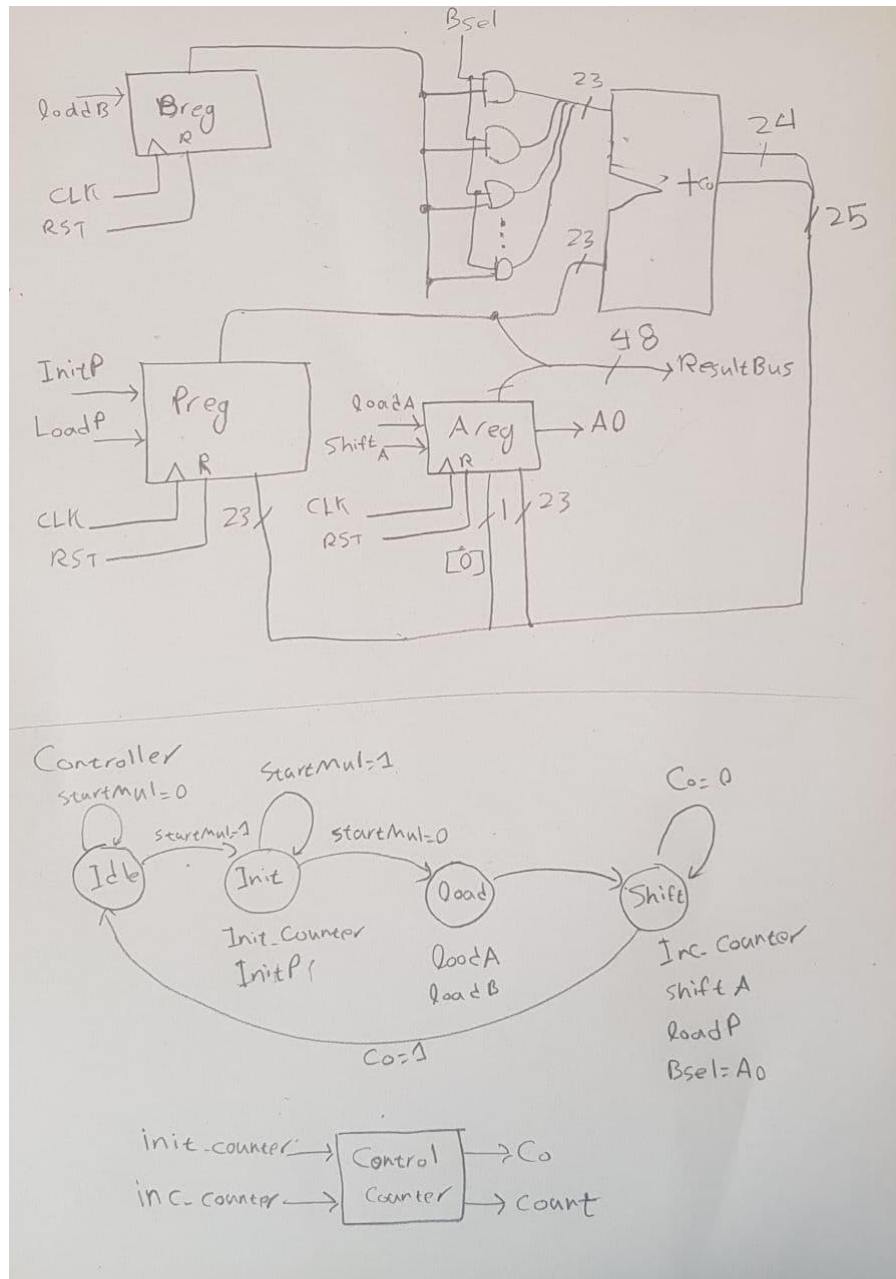 Bsel
loadB
Breg
R
CLK
RST
23
24
+
Co
25
23
48
ResultBus
InitP
LoadP
Preg
R
CLK
RST
23
loadA
Shift A
Areg
R
A0
CLK
RST
1
23
[0]
Controller
startMul=0
StartMul=1
startMul=1
startMul=0
Co=0
Idle
Init
load
Shift
Init_Counter
InitP
loadA
loadB
Inc_Counter
shift A
loadP
Bsel=A0
Co=1
init_counter
inc_counter
Control
Counter
Co
Count